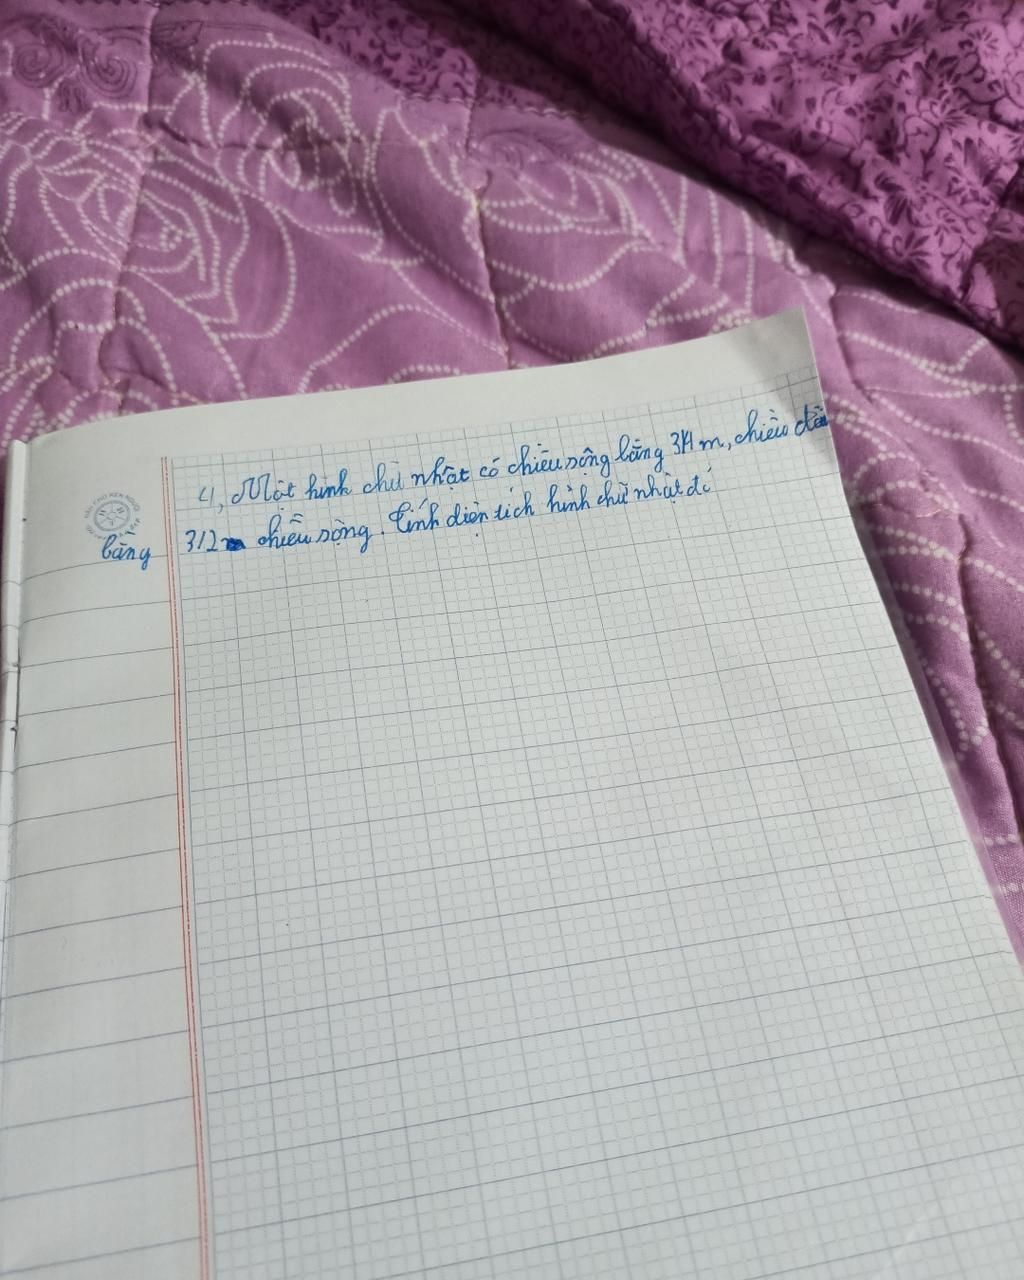 4, Một hình chữ nhật có chiều rộng bằng 3/4 m, chiều dài
bằng 3/2 chiều rộng. Tính diện tích hình chữ nhật đó